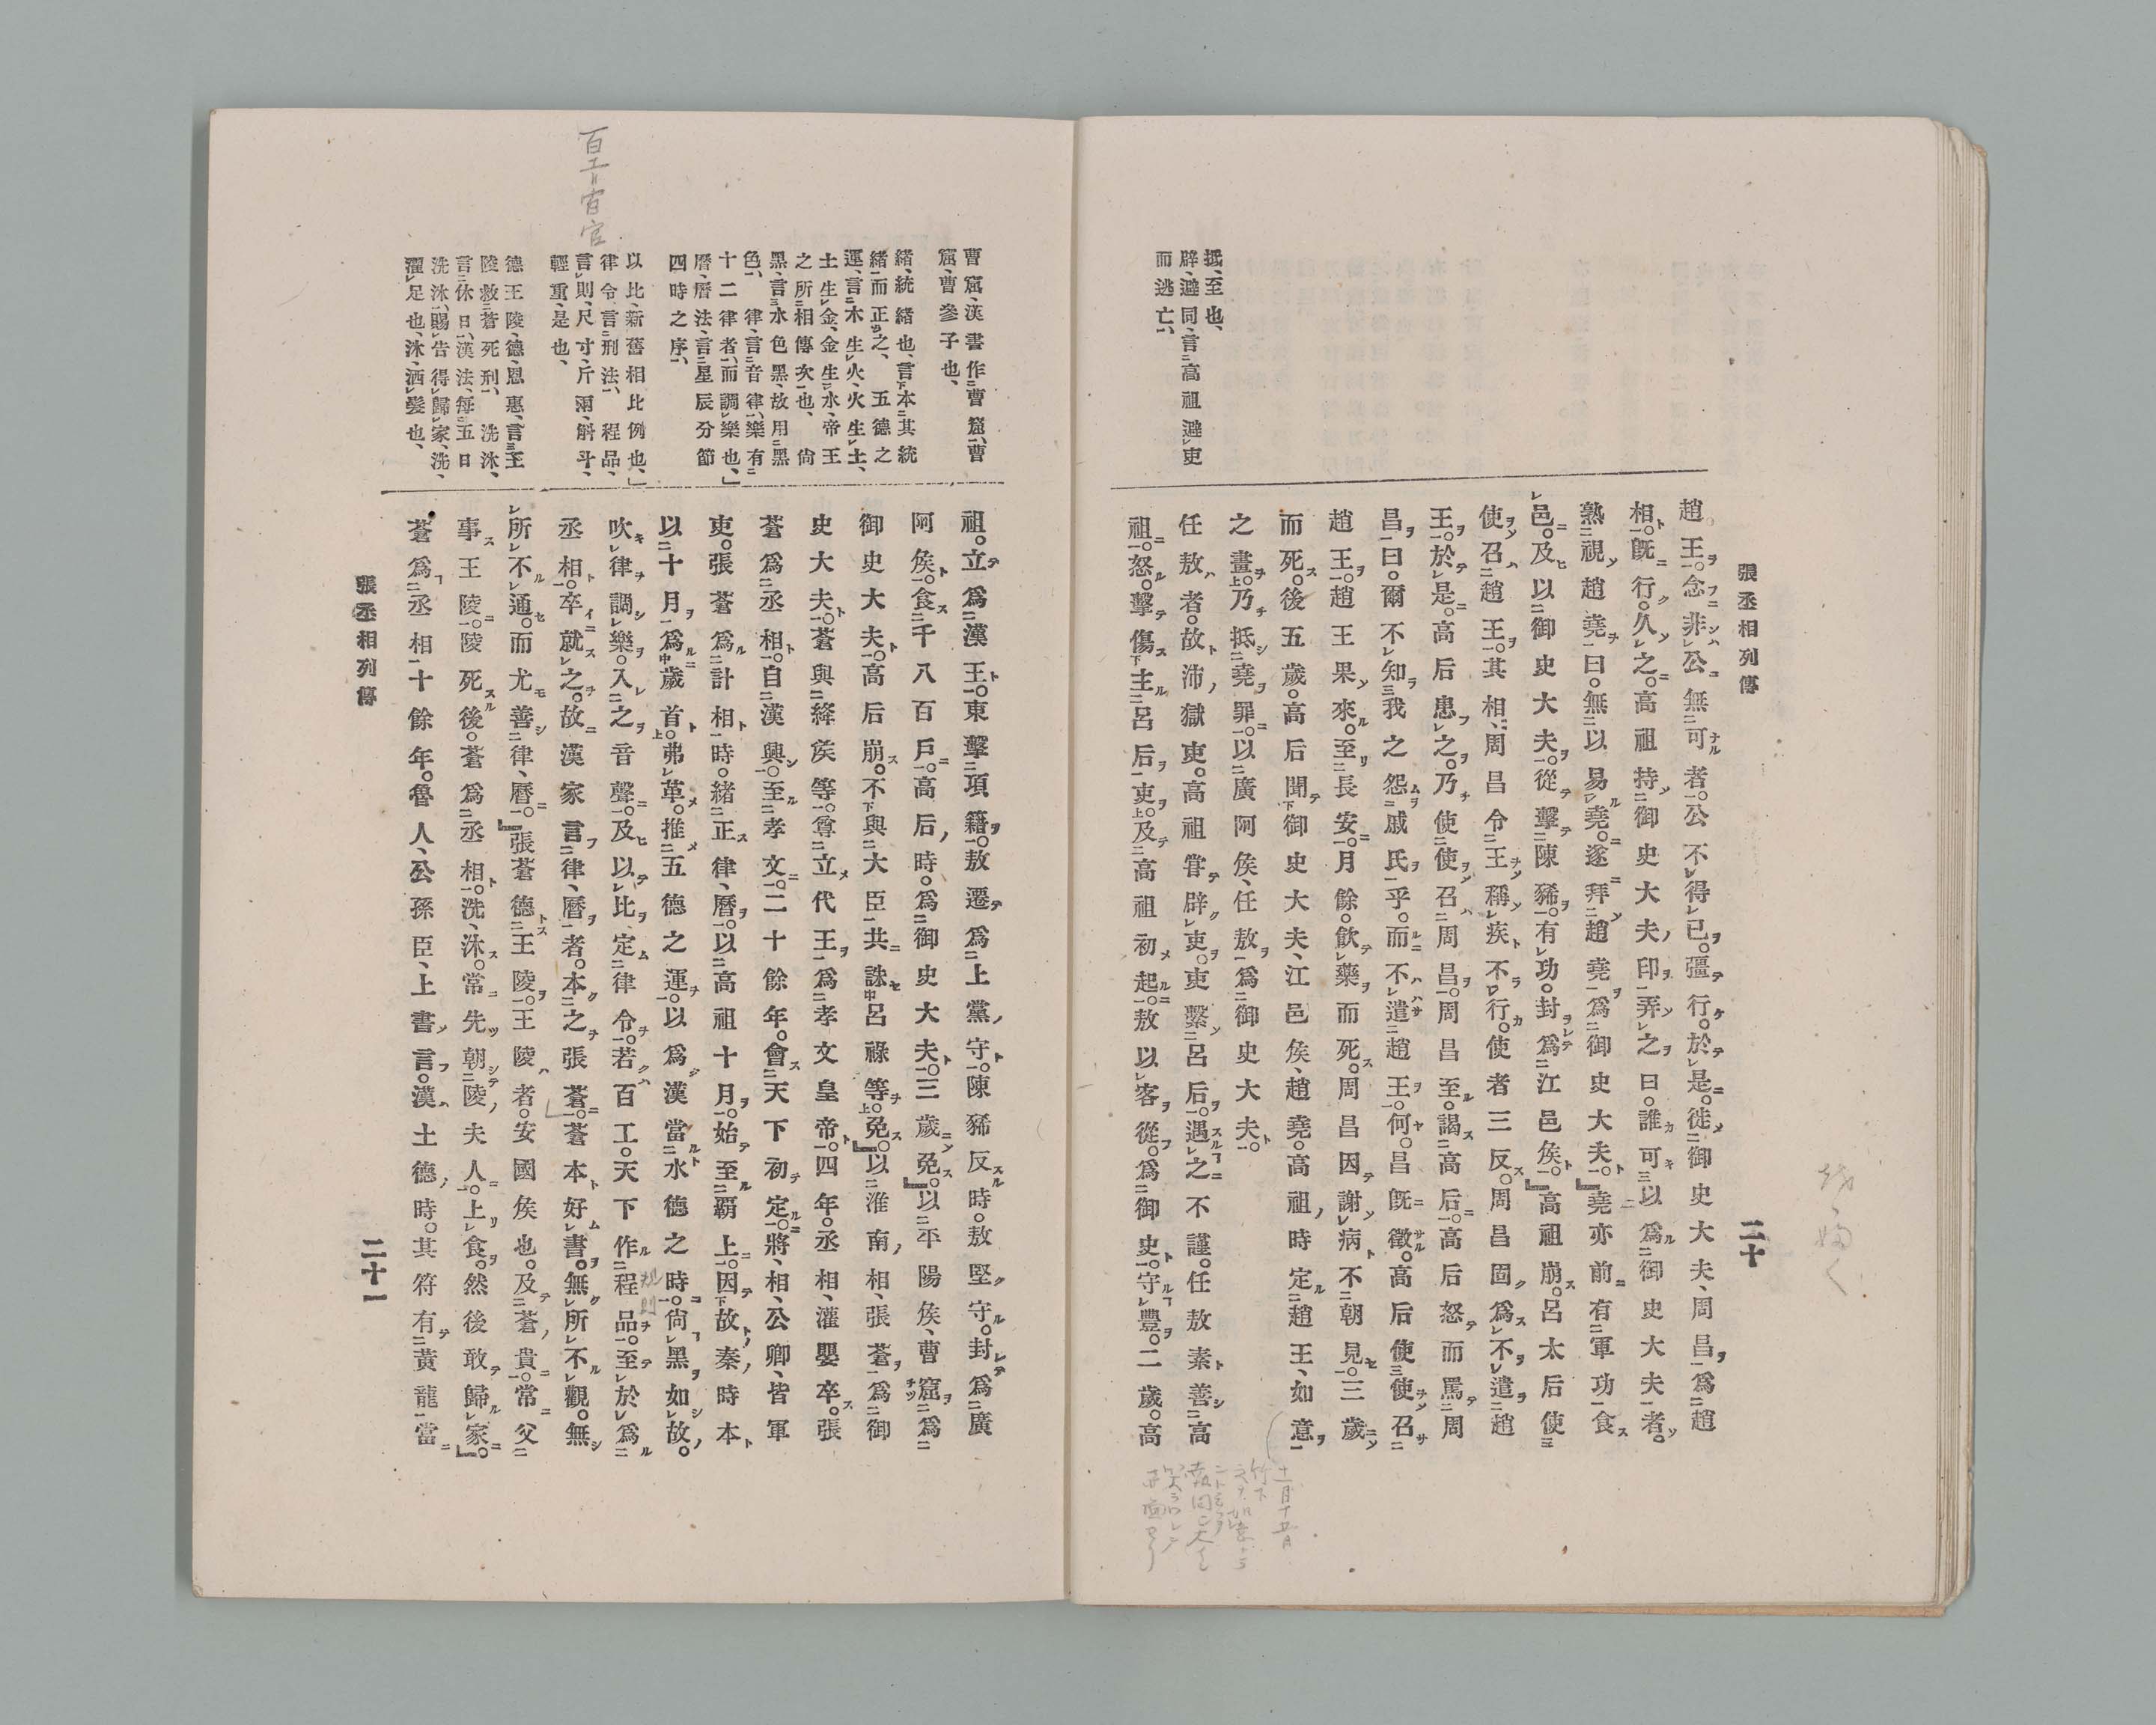 張丞相列傳
二十
抵、至也、
辟、避同、言高祖避吏
而逃亡、
趙王。念非公無可者。公不得已。彊行。於是。徙御史大夫、周昌爲趙
相。既行。久之。高祖持御史大夫印弄之曰。誰可以爲御史大夫者。
熟視趙堯曰。無以易堯。遂拜趙堯爲御史大夫。」堯亦前有軍功食
邑。及以御史大夫。從擊陳豨。有功。封爲江邑矦。」高祖崩。呂太后使
使召趙王。其相、周昌令王稱疾不行。使者三反。周昌固爲不遣趙
王。於是。高后患之。乃使使召周昌。周昌至。謁高后。高后怒而罵周
昌曰。爾不知我之怨戚氏乎。而不遣趙王。何。昌既徵。高后使使召
趙王。趙王果來。至長安。月餘。飮藥而死。周昌因謝病不朝見。三歲
而死。後五歲。高后聞御史大夫、江邑矦、趙堯。高祖時定趙王、如意
之畫。乃抵堯罪。以廣阿矦、任敖爲御史大夫。
任敖者。故沛獄吏。高祖嘗辟吏。吏繫呂后。遇之不謹。任敖素善高
祖。怒。擊傷主呂后吏。及高祖初起。敖以客從。爲御史。守豐。二歲。高
十一月十五日
竹下
曹窋、漢書作曹窋、曹
窋、曹參子也、
緒、統緒也、言本其統
緒而正之、五德之
運、言木生火、火生土、
土生金、金生水、帝王
之所相傳次也、尙
黑、言水色黑、故用黑
色、律、言音律、樂有
十二律者、而調樂也、」
曆、曆法、言星辰分節
四時之序、
以比、新舊相比例也、」
律令、言刑法、程品、
言則、尺寸、斤兩、斛斗、
輕重、是也、
德王陵、德、恩惠、言王
陵救蒼死刑、洗沐、
言休日、漢法、每五日
洗沐、賜告得歸家、洗、
濯足也、沐、洒髮也、
百工＝百官
祖。立爲漢王。東擊項籍。敖遷爲上黨守。陳豨反時。敖堅守。封爲廣
阿矦。食千八百戶。高后時。爲御史大夫。三歲免。」以平陽矦、曹窋爲
御史大夫。高后崩。不與大臣共誅呂祿等。免。」以淮南相、張蒼爲御
史大夫。蒼與絳矦等。尊立代王爲孝文皇帝。四年。丞相、灌嬰卒。張
蒼爲丞相。自漢興。至孝文。二十餘年。會天下初定。將、相、公卿、皆軍
吏。張蒼爲計相時。緒正律、曆。以高祖十月。始至霸上。因故秦時本
以十月爲歲首。弗革。推五德之運。以爲漢當水德之時。尙黑如故。
吹律調樂。入之音聲。及以比定律令。若百工。天下作程品。至於爲
丞相。卒就之。故漢家言律、曆者。本之張蒼。」蒼本好書。無所不觀。無
所不通。而尤善律、曆。」張蒼德王陵。王陵者。安國矦也。及蒼貴。常父
事王陵。陵死後。蒼爲丞相。洗、沐。常先朝陵夫人。上食。然後敢歸家。」
蒼爲丞相十餘年。魯人、公孫臣、上書言。漢土德時。其符有黃龍當
張丞相列傳
二十一